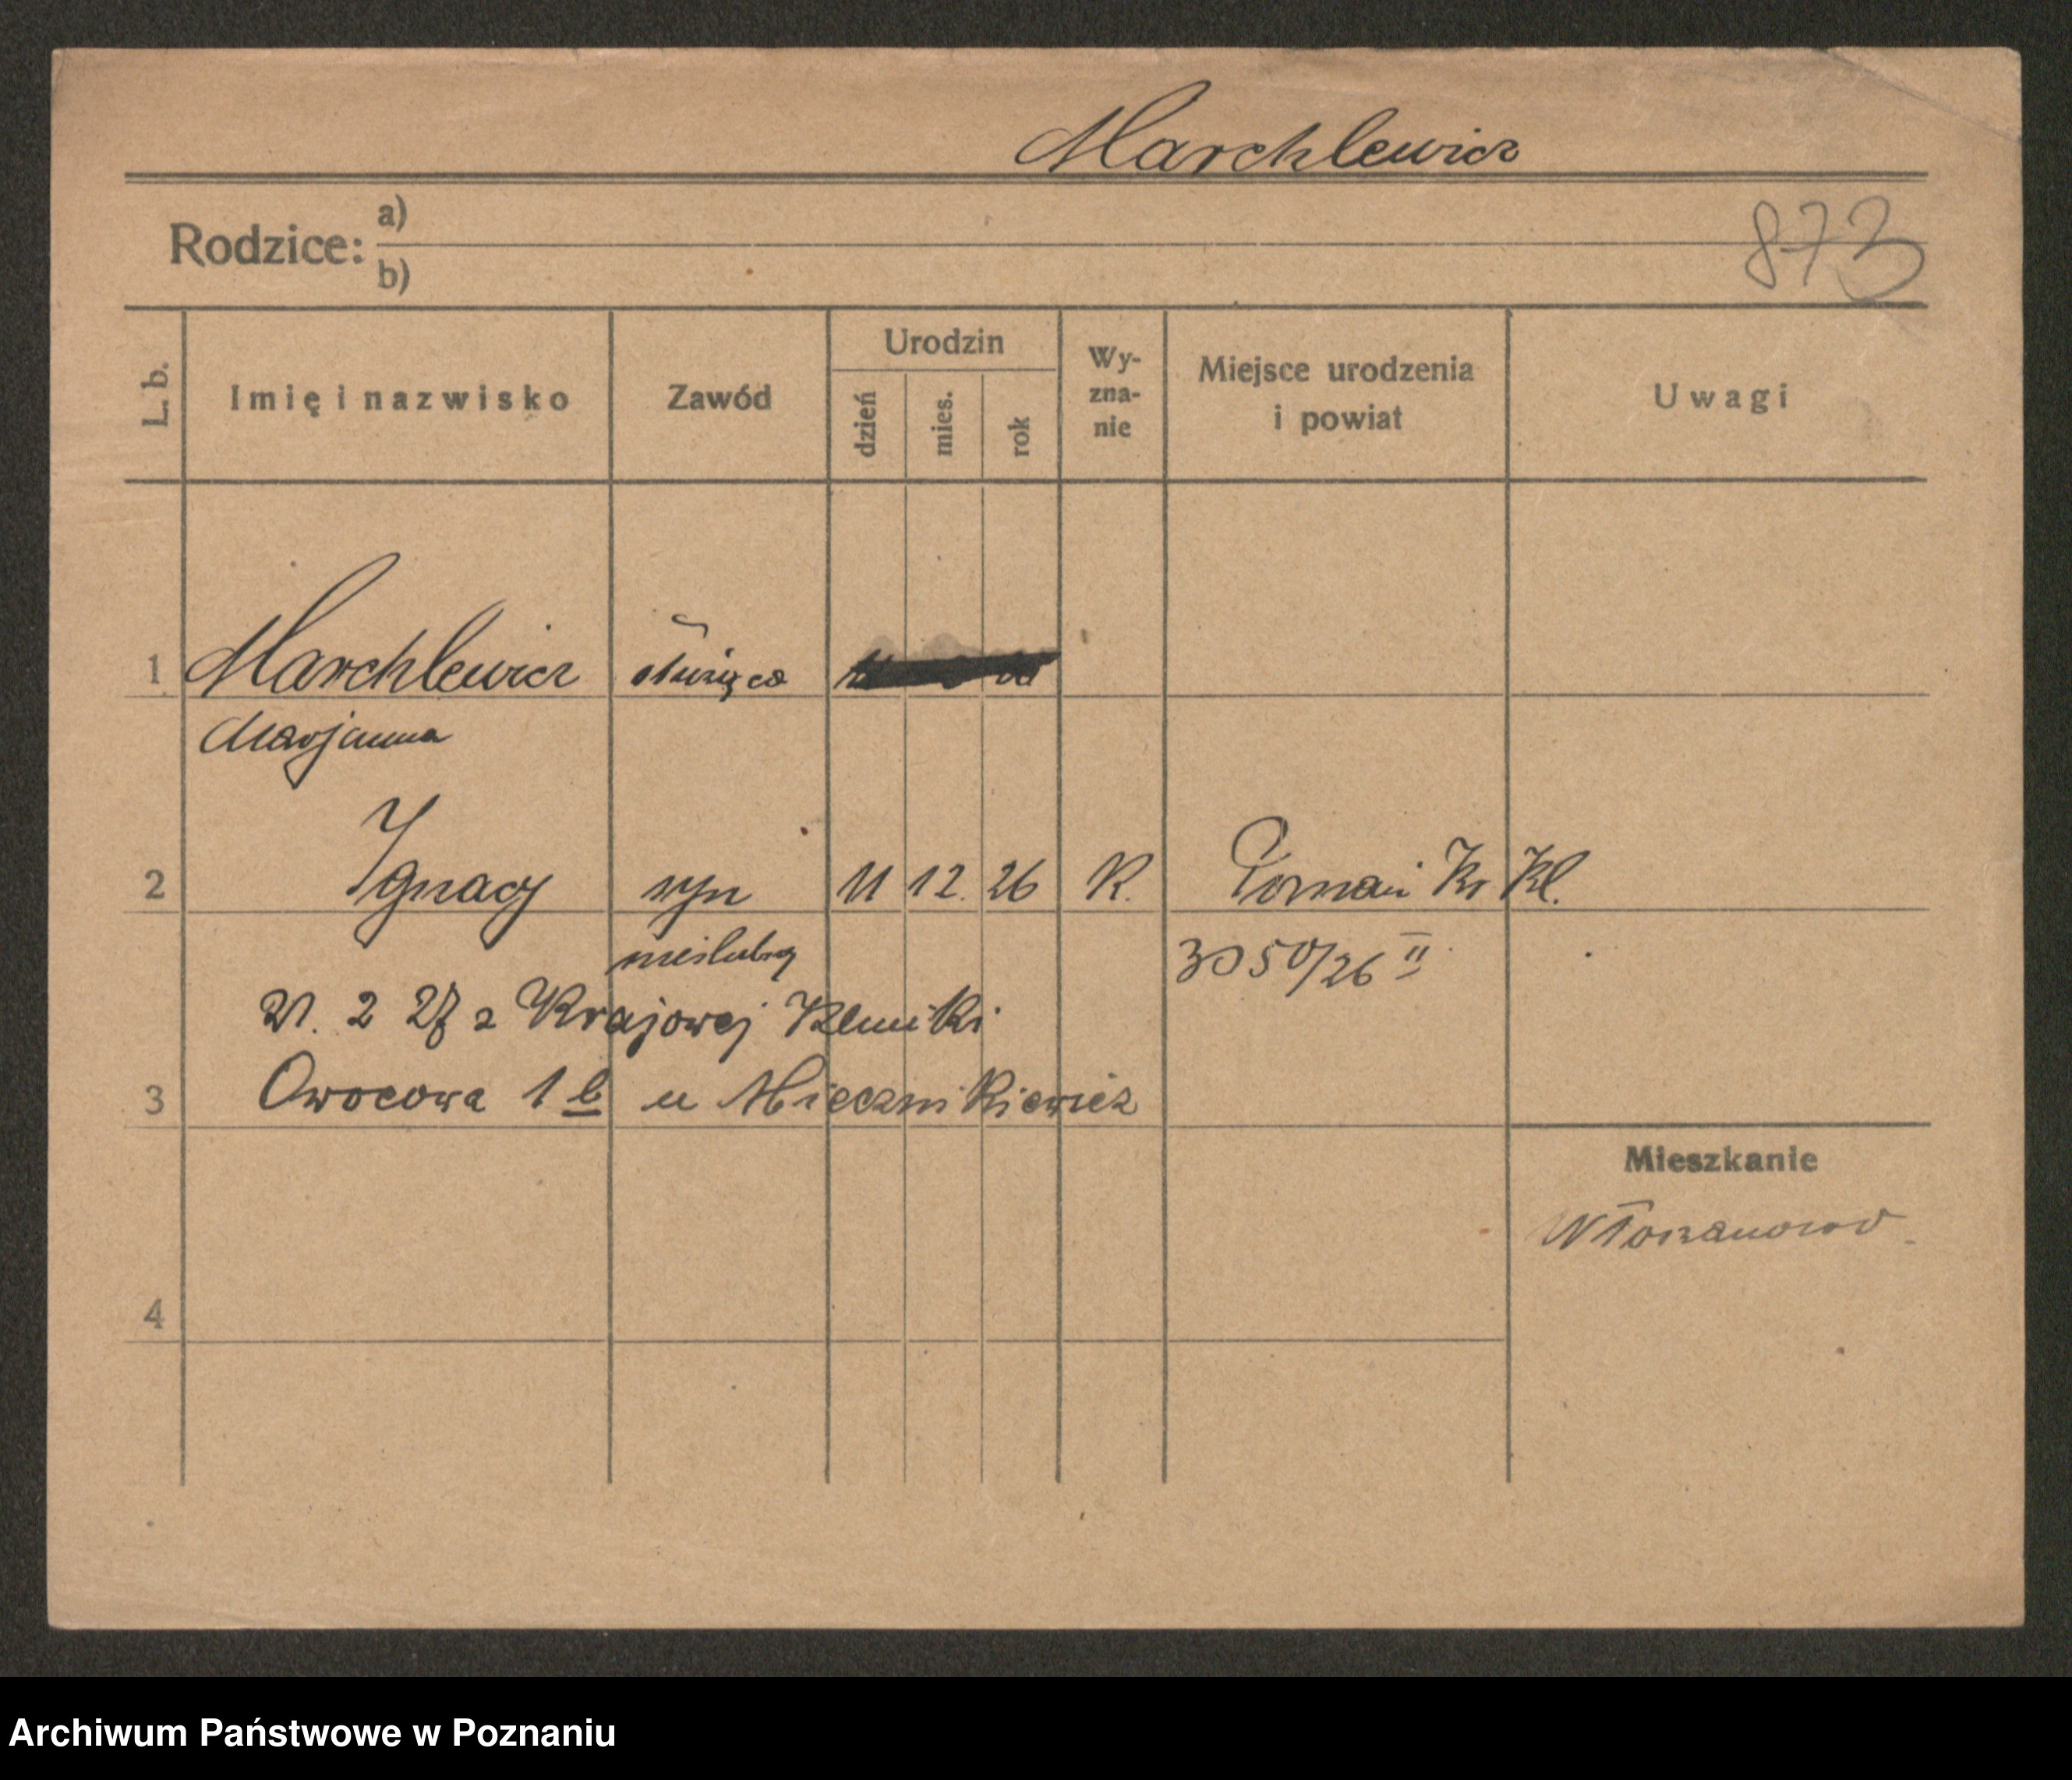 Marchlewicz
Rodzice: a)
b)
873
L. b.
Imię i nazwisko
Zawód
Urodzin
dzień
mies.
rok
Wy-
zna-
nie
Miejsce urodzenia
i powiat
Uwagi
1 Marchlewicz służąca
Marjanna
2 Ignacy syn 11 12. 26 K. Poznań Kr Kl.
nieślubny 3050/26 II
21. 2 27 z Krajowej Kliniki
3 Owocowa 1 b u Miecznikiewicz
Mieszkanie
4
Archiwum Państwowe w Poznaniu